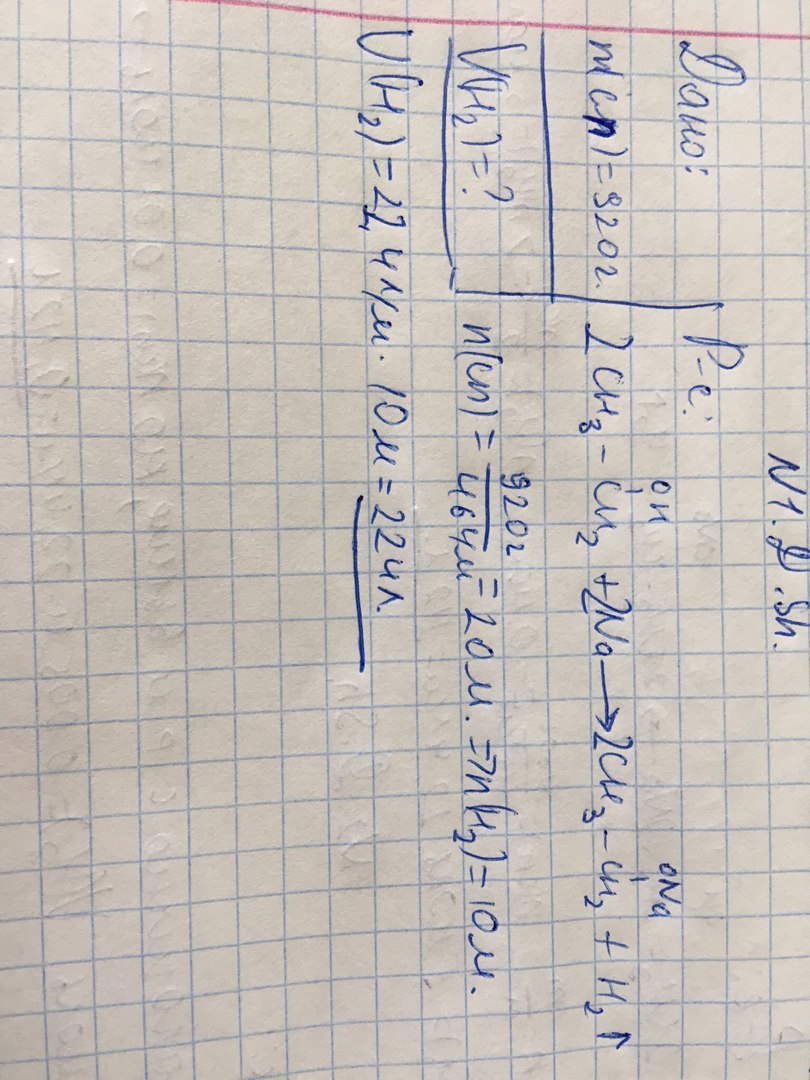 N1. D.Sh.
Дано:
m(сп)=920г.
V(H₂)=?
Р-е:
OH ONa
2CH₃-CH₂ +2Na→2CH₃-CH₂ + H₂↑
n(сп) = 920г / 46г/м = 20м. => n(H₂)=10м.
V(H₂)=22,4л/м. 10м=224л.